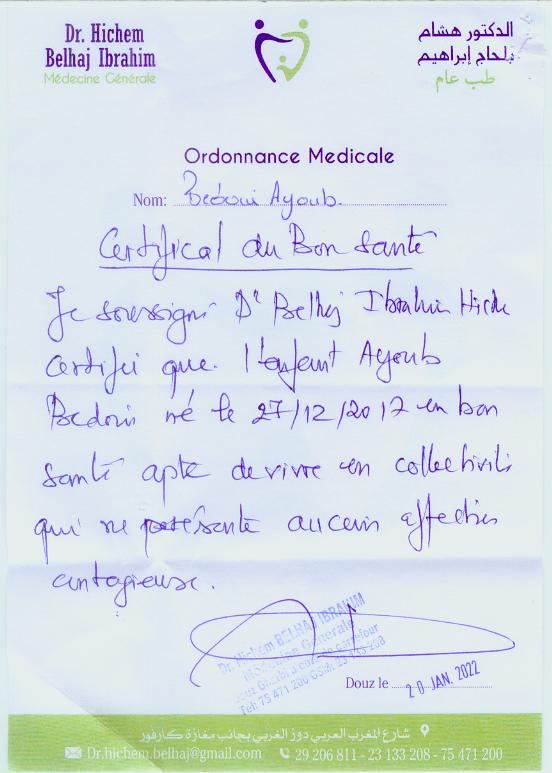 Dr. Hichem
Belhaj Ibrahim
Médecine Générale
الدكتور هشام
بلحاج إبراهيم
طب عام
Ordonnance Medicale
Nom: Bedoui Ayoub.
Certifical du Bon santé
Je soussigné Dr Belhaj Ibrahim Hichem
certifié que l'enfant Ayoub
Bedoui né le 27/12/2017 en bon
santé apte de vivre en collectivité
qui ne présente aucun affection
contagieuse.
Dr. Hichem BELHAJ IBRAHIM
Médecine Générale
Douz Gharbi à côté de carrefour
Tel: 75 471 200 GSM: 23 133 208
Douz le 20 JAN. 2022
شارع المغرب العربي دوز الغربي بجانب مغازة كارفور
Dr.hichem.belhaj@gmail.com 29 206 811 - 23 133 208 - 75 471 200